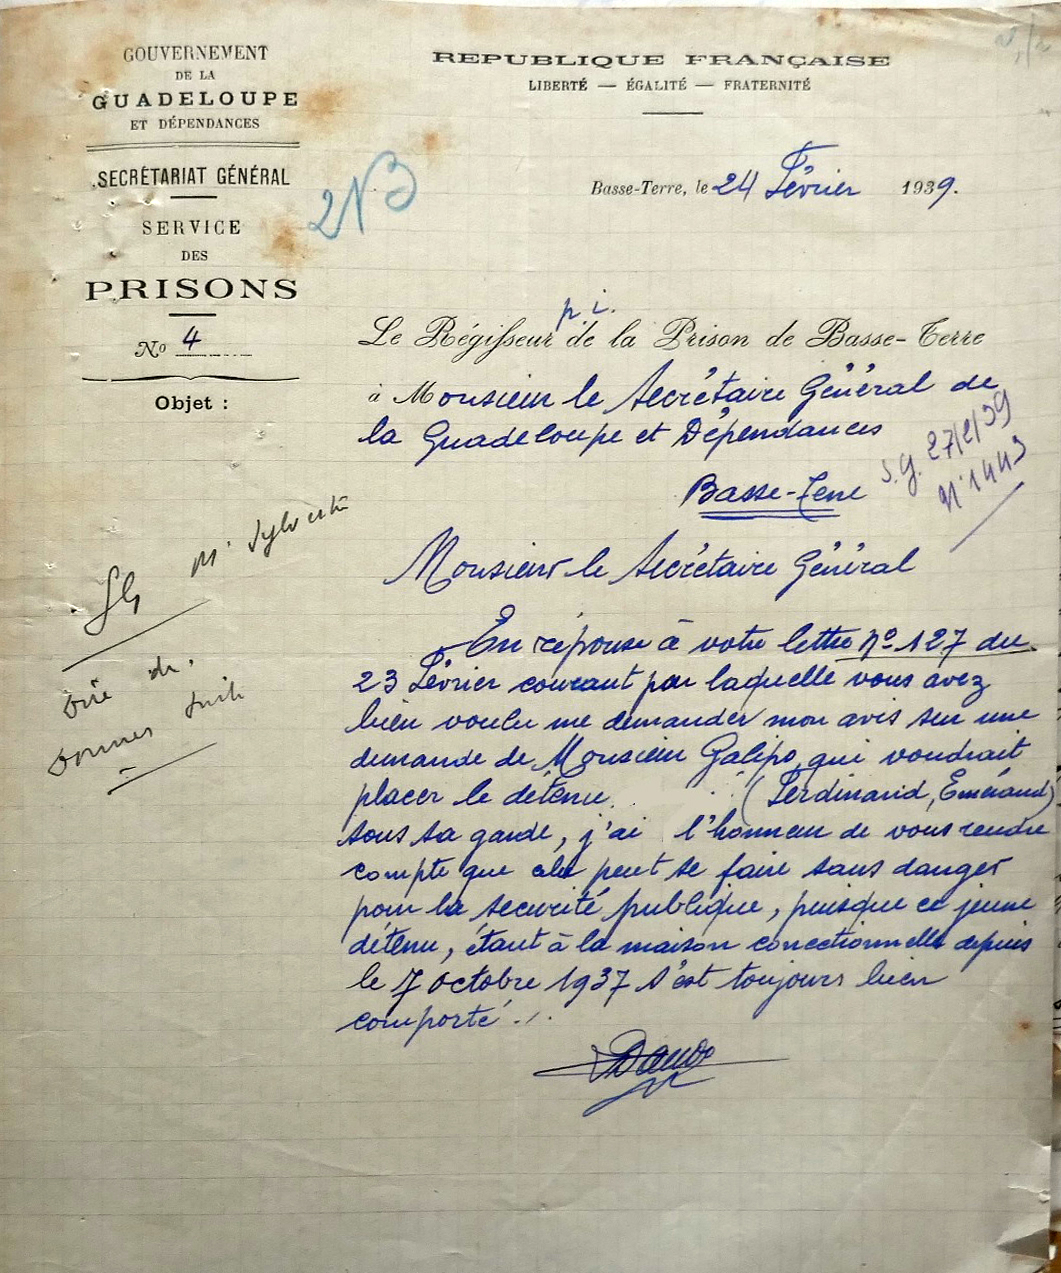 GOUVERNEMENT
DE LA
GUADELOUPE
ET DÉPENDANCES
SECRÉTARIAT GÉNÉRAL
SERVICE
DES
PRISONS
No 4
Objet :
REPUBLIQUE FRANÇAISE
LIBERTÉ — ÉGALITÉ — FRATERNITÉ
2N3
Basse-Terre, le 24 Février 1939.
p. i.
Le Régisseur de la Prison de Basse-Terre
à Monsieur le Secrétaire Général de
la Guadeloupe et Dépendances
Basse-Terre
S.G. 27/2/39
N° 1443
Monsieur le Secrétaire Général
En réponse à votre lettre No 127 du
23 Février courant par laquelle vous avez
bien voulu me demander mon avis sur une
demande de Monsieur Galipo, qui voudrait
placer le détenu (Ferdinand, Eméraud)
sous sa garde, j'ai l'honneur de vous rendre
compte que cela peut se faire sans danger
pour la sécurité publique, puisque ce jeune
détenu, étant à la maison correctionnelle depuis
le 7 octobre 1937 s'est toujours bien
comporté ./.
SG
Mr Sylvestre
donner suite